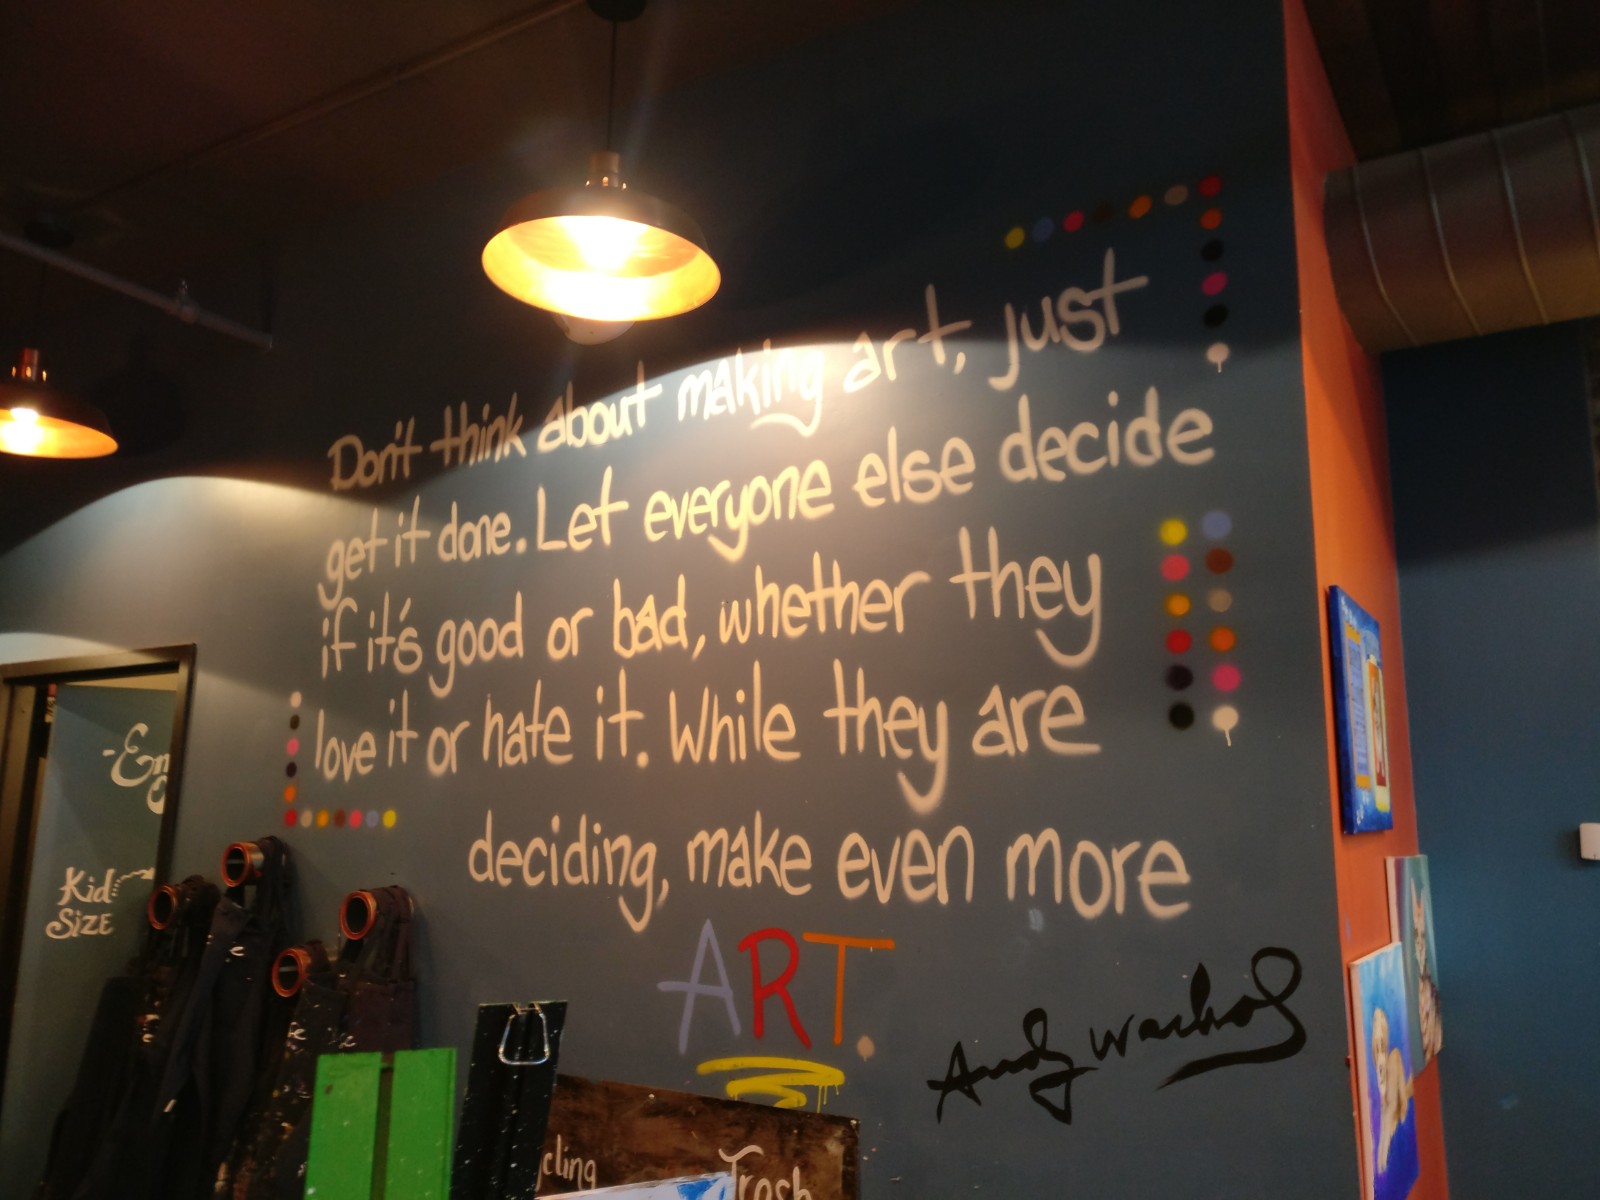 Don't think about making art, just
get it done. Let everyone else decide
if it's good or bad, whether they
love it or hate it. While they are
deciding, make even more
ART.
Andy Warhol
Kid
Size
Trash